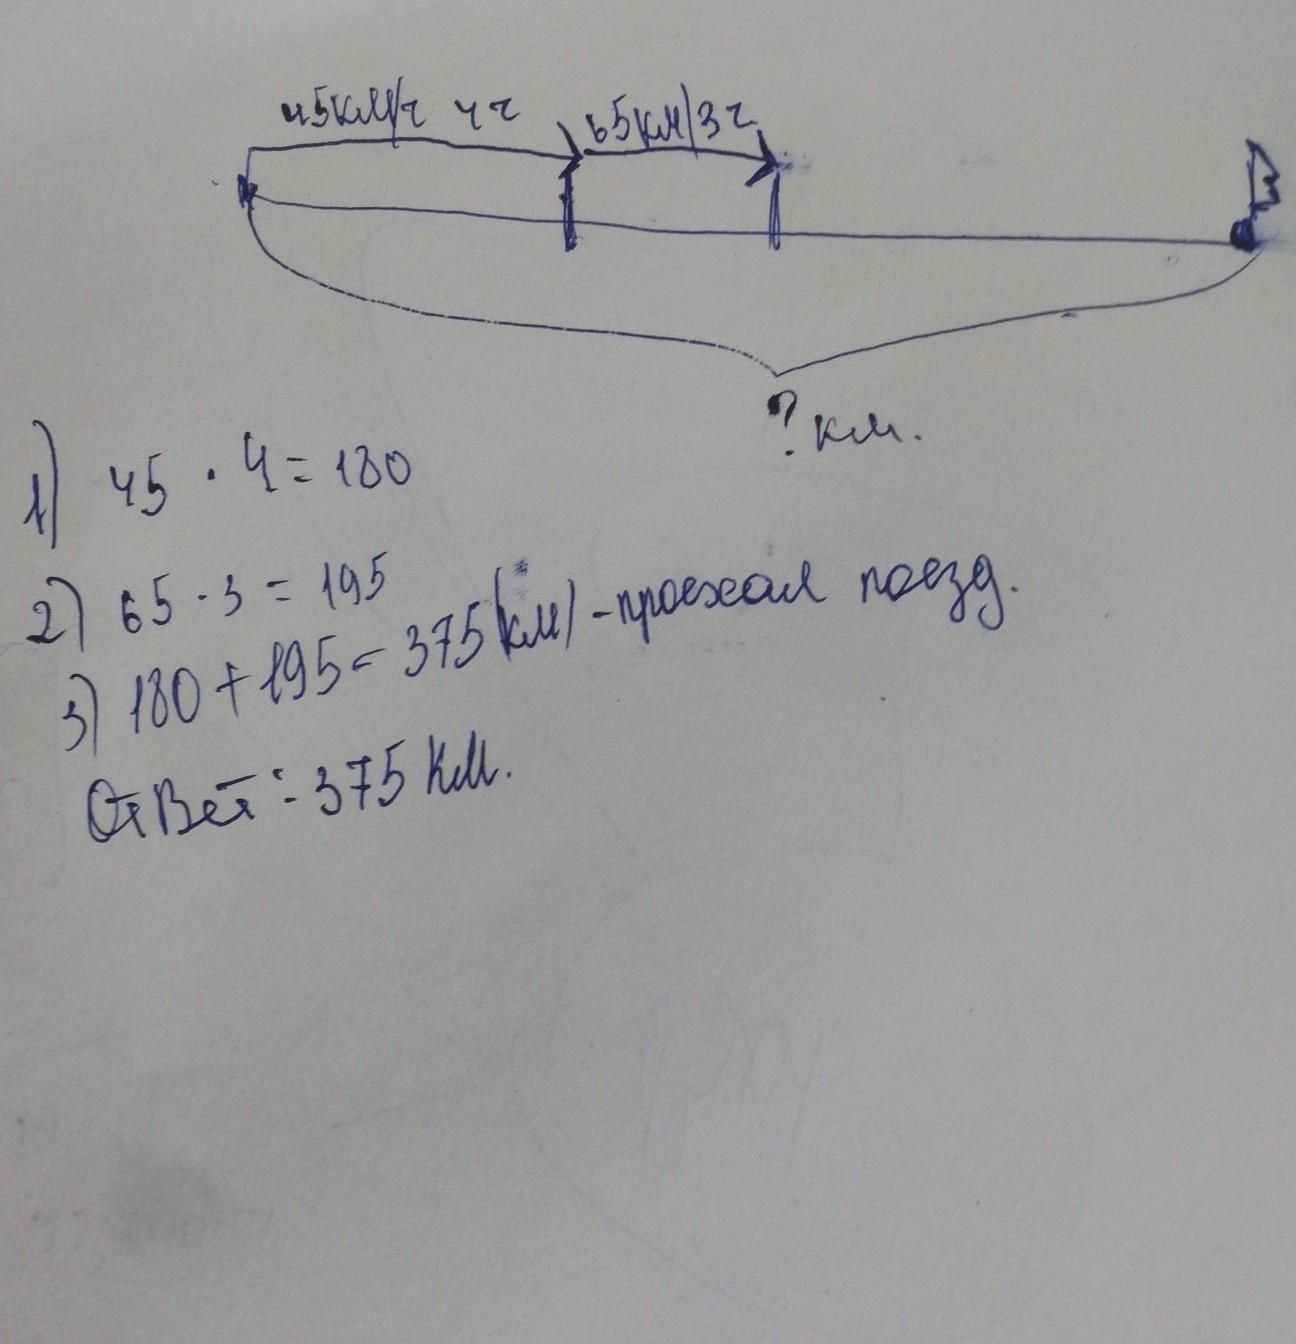 45км/ч 4ч 65км/3ч
? км.
1) 45 · 4 = 180
2) 65 · 3 = 195
3) 180 + 195 = 375 (км) - проехал поезд.
Ответ: 375 км.